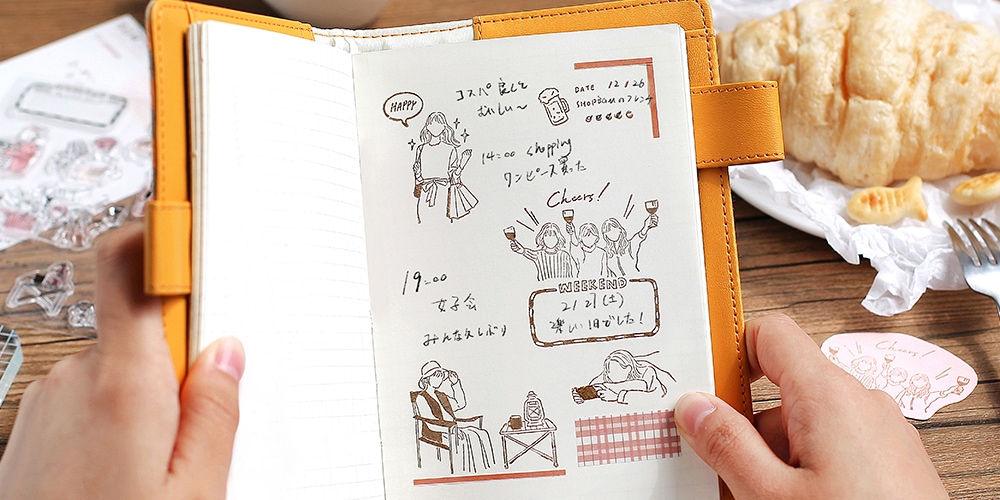 HAPPY
コスパ良くて
おいしい〜
DATE 12/26
SHOP
14:00 shopping
ワンピース買った
Cheers!
19:00
女子会
みんな久しぶり
WEEKEND
(土)
楽しい1日でした!
Cheers!